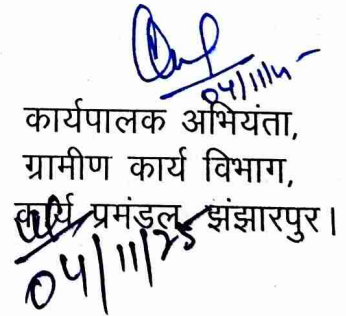 04/11/25
कार्यपालक अभियंता,
ग्रामीण कार्य विभाग,
कार्य प्रमंडल, झंझारपुर।
04/11/25